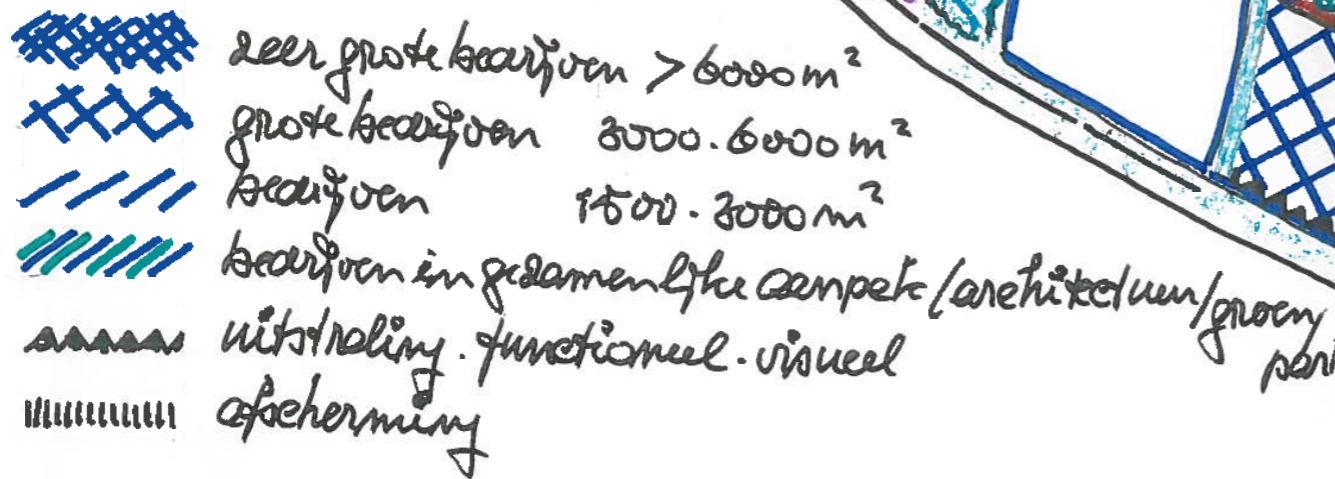 zeer grote bedrijven > 6000 m²
grote bedrijven 3000.6000 m²
bedrijven 1500.3000 m²
bedrijven in gezamenlijke aanpak (architectuur/groen/
uitstraling.functioneel.visueel
afscherming